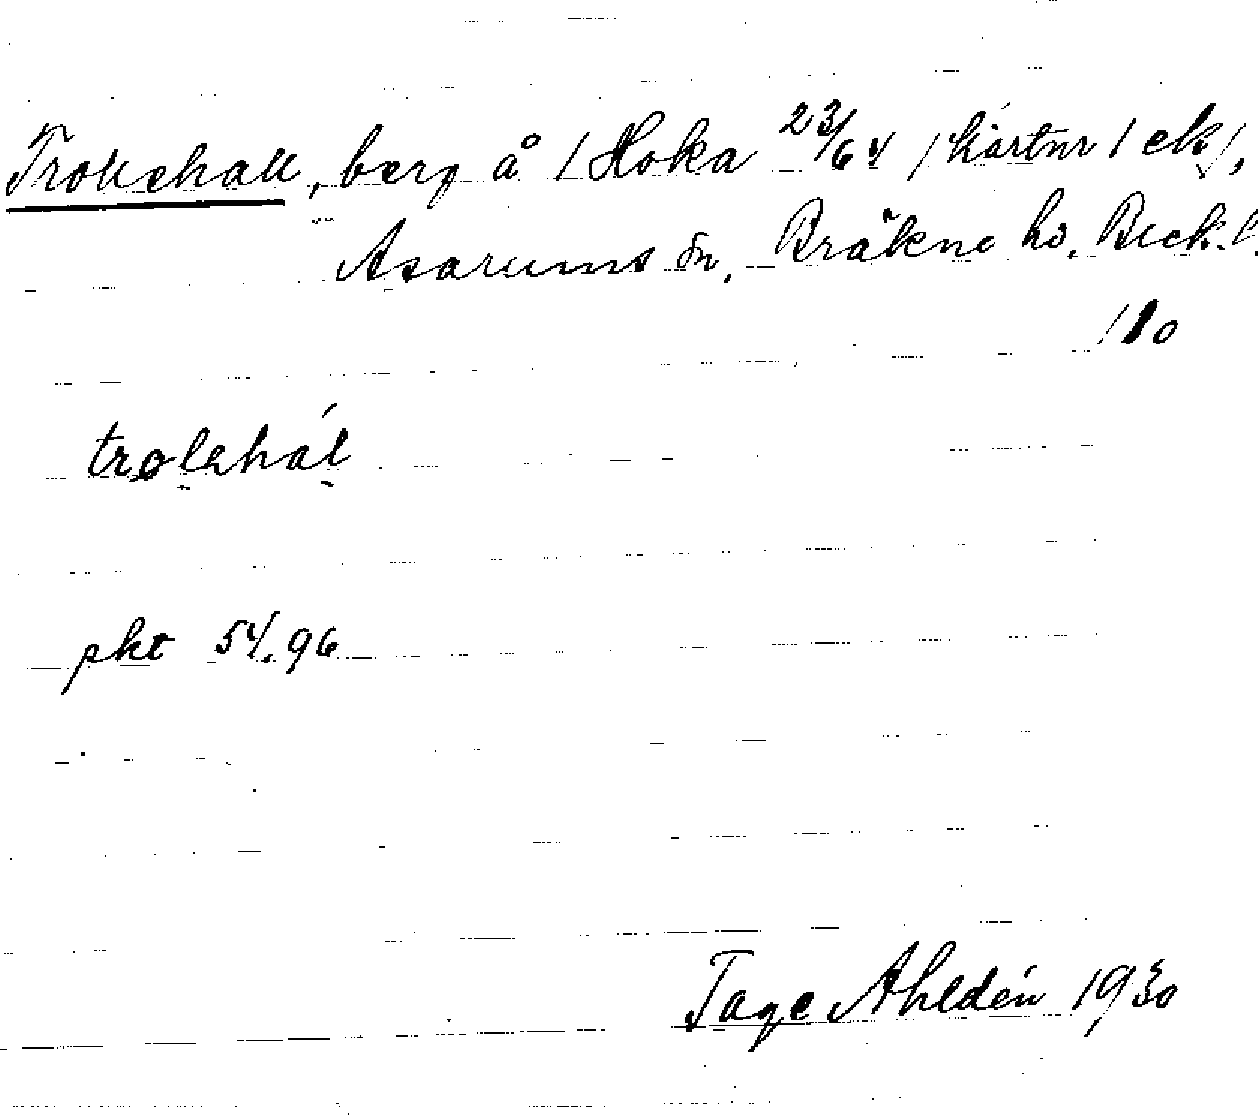 Trollehall, berg å 1 Hoka 23/64 /kartnr 1 ek/,
Asarums sn, Bräkne hd, Blek. l.
110
pkt 54,96
Tage Ahldén 1930